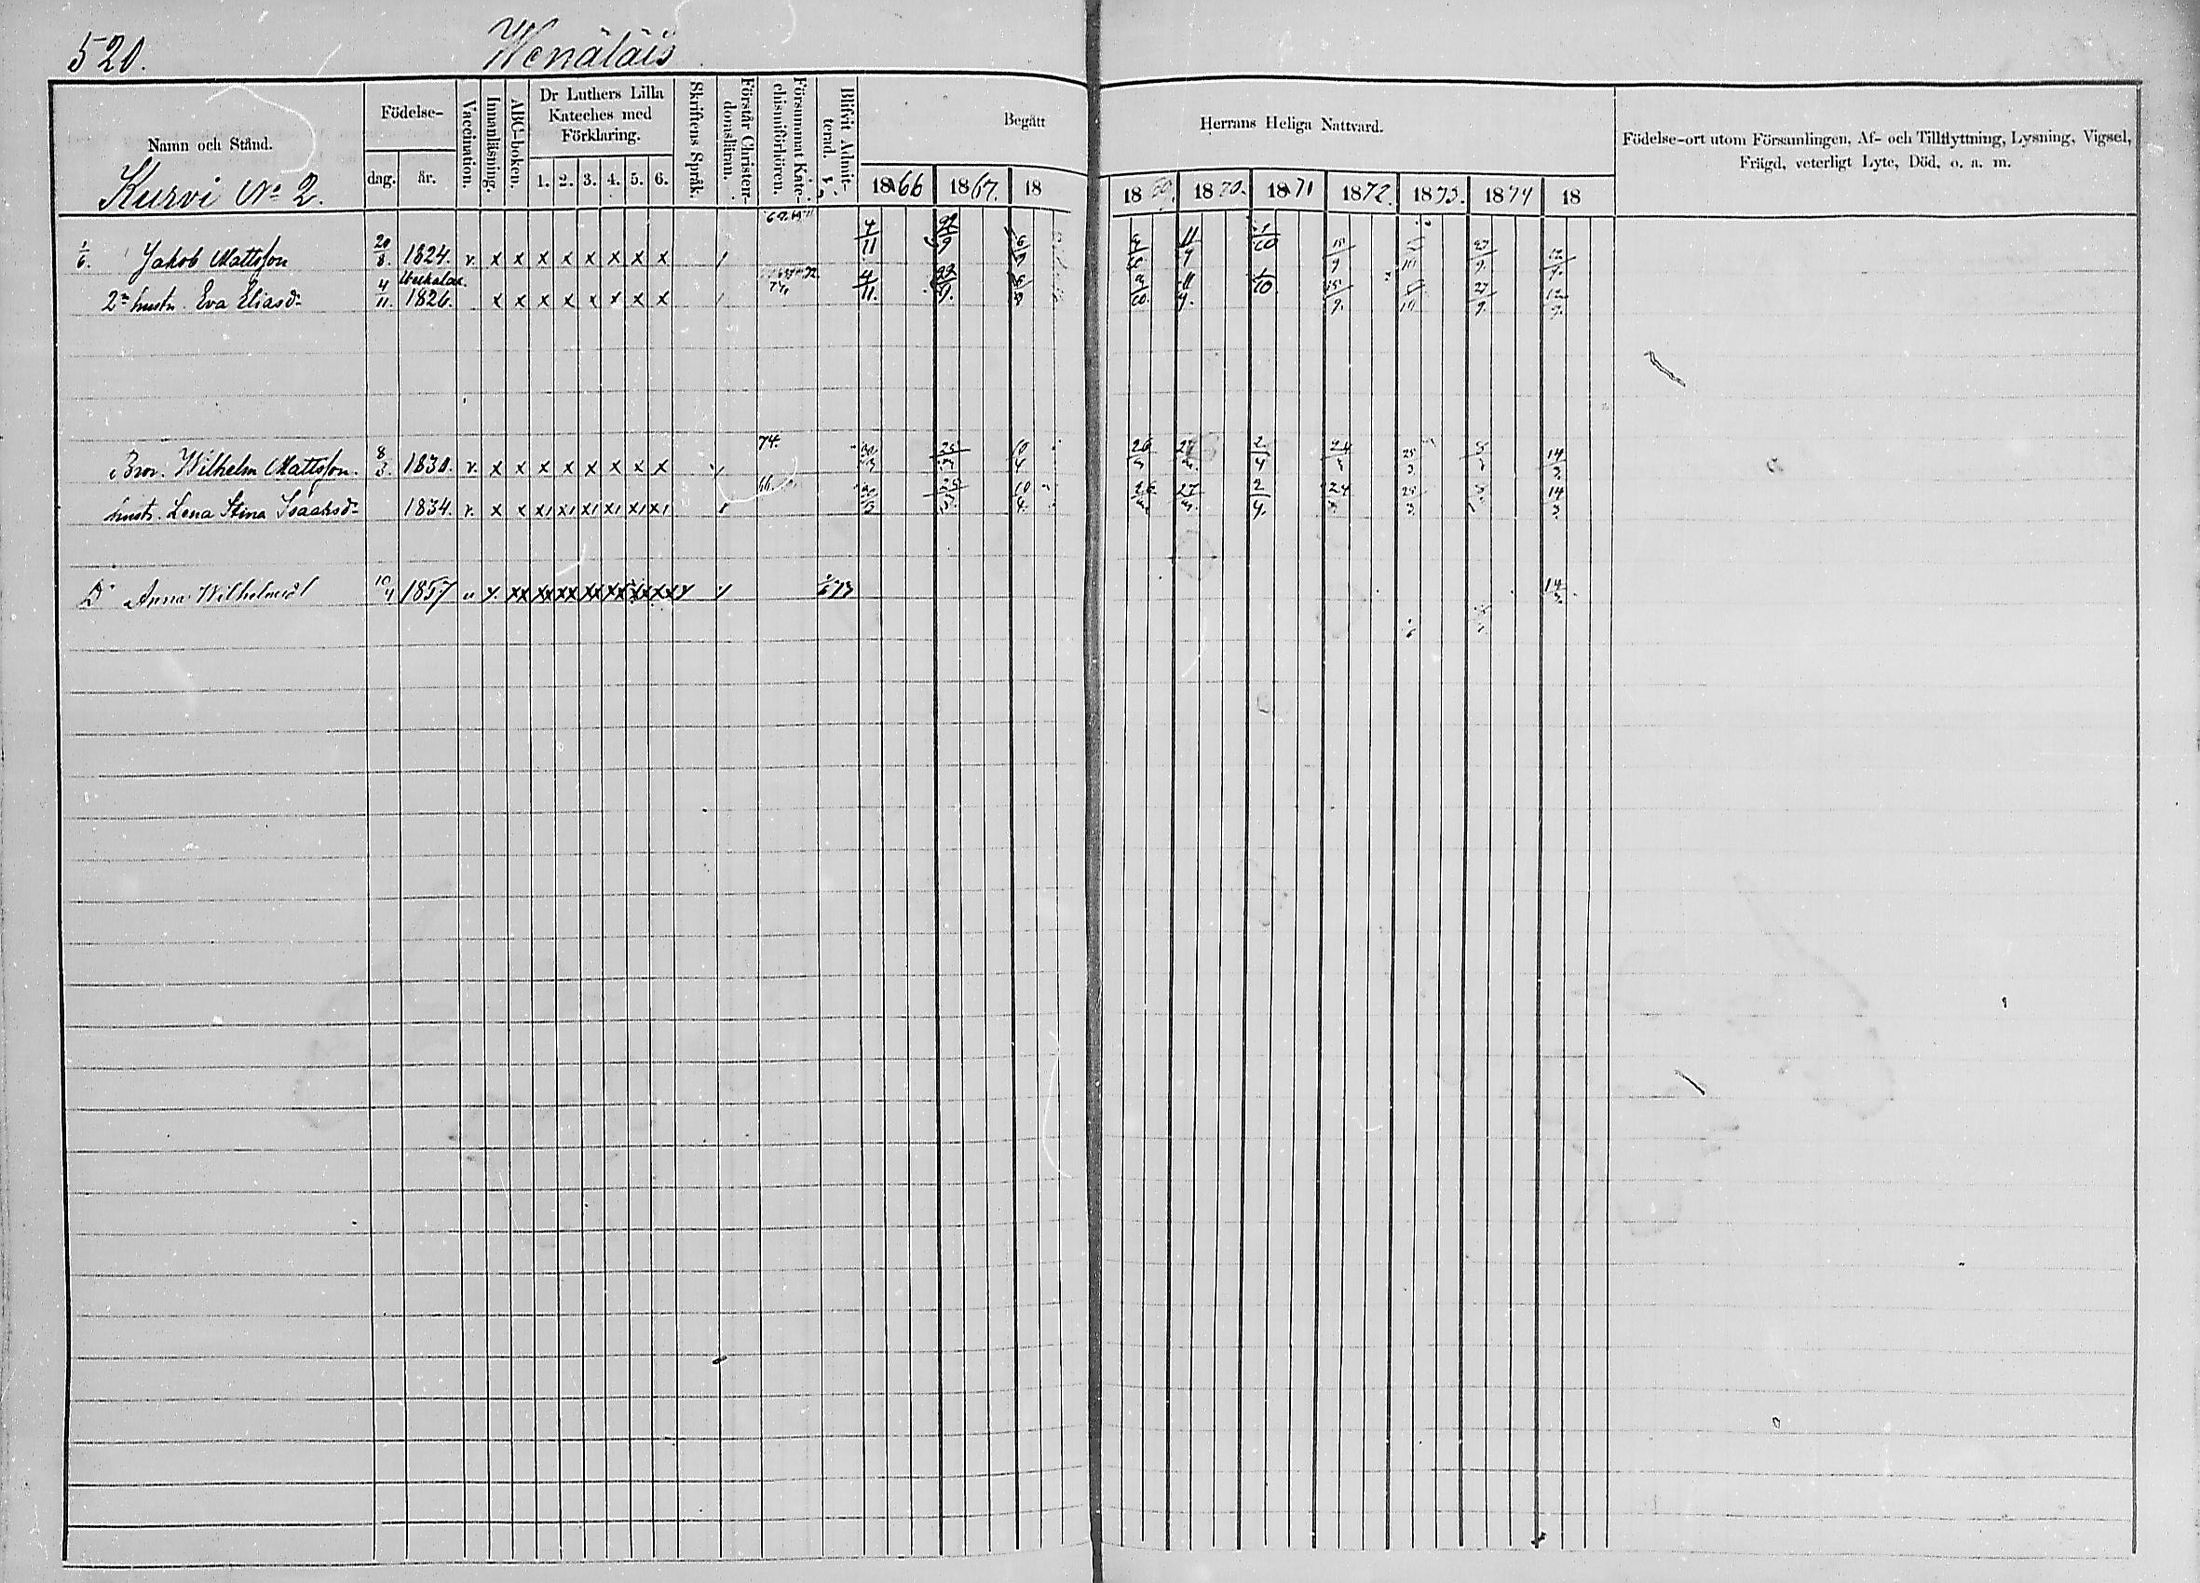 520.
Wenäläis
Namn och Stånd.
Födelse-
dag.
år.
Vaccination.
Innanläsning.
ABC-boken.
Dr Luthers Lilla
Kateches med
Förklaring.
1. 2. 3. 4. 5. 6.
Skriftens Språk.
Förstår Christen-
domsläran.
Försummat Kate-
chismiförhören.
Blifvit Admit-
terad.
Begått
Herrans Heliga Nattvard.
1866 1867. 18
18 1870. 1871 1872. 1873. 1874 18
Födelse-ort utom Församlingen, Af- och Tillflyttning, Lysning, Vigsel,
Frägd, veterligt Lyte, Död, o. a. m.
Kurvi No 2.
1/6. Jakob Mattsson 20/8. 1824. v. x x x x x x x x 4/11 22/9 11/9 1/10 15/9 27/9. 12/9.
2a hustr. Eva Eliasdr 4/11. 1826. x x x x x x x x 4/11. 22/9. 11/9. 1/10. 15/9. 27/9. 12/9.
Bror. Wilhelm Mattsson. 8/3. 1830. v. x x x x x x x x 74. 25/3 10/4 26/3 27/3 2/4 24/3 25/3 14/3.
hustr. Lena Stina Isaaksdr 1834. v. x x x1 x1 x1 x1 x1 x1 66. 25/3. 10/4. 26/3 27/3. 2/4. 24/3 25/3. 14/3.
Dr Anna Wilhelmsd 10/4 1857 v 14/3.